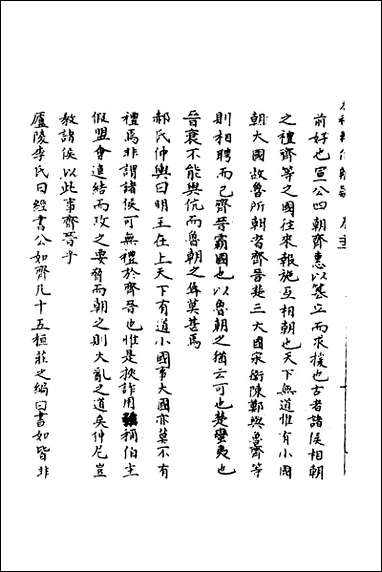 前好也宣公四朝齊惠以篡立而求援也古者諸侯相朝
之禮齊等之國往來報施互相朝也天下無道惟有小國
朝大國故魯所朝者齊晉楚三大國宋衛陳鄭與魯齊等
則相聘而已齊晉霸國也以魯朝之猶云可也楚蠻夷也
晉衰不能與伉而魯朝之辱莫甚焉
郝氏仲輿曰明王在上天下有道小國事大國亦莫不有
禮焉非謂諸侯可無禮於齊晉也惟是挾詐用 稱伯主
假盟會連結而攻之要脅而朝之則大亂之道矣仲尼豈
教諸侯以此事齊晉乎
廬陵李氏曰經書公如齊凡十五桓莊之編曰書如皆非